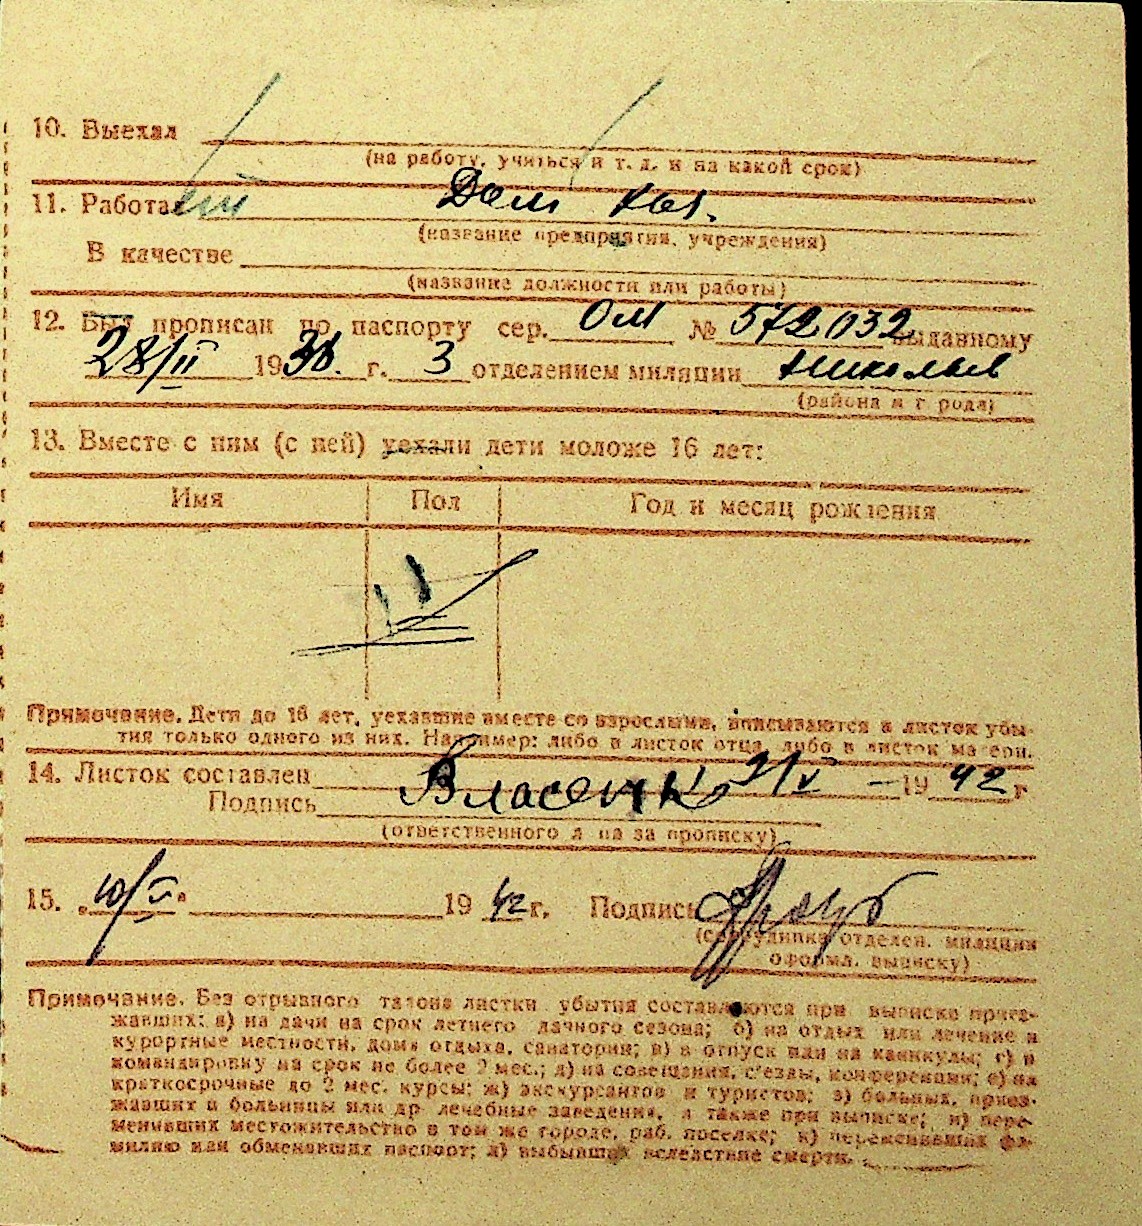 10. Выехал
(на работу, учиться и т. д. и на какой срок)
11. Работа Дом хоз.
(название предприятия, учреждения)
В качестве
(название должности или работы)
12. Был прописан по паспорту сер. ОМ № 572032 выданному
28/II 1938. г. 3 отделением милиции Николаев
(района и города)
13. Вместе с ним (с ней) уехали дети моложе 16 лет:
Имя Пол Год и месяц рождения
Примечание. Дети до 16 лет, уехавшие вместе со взрослыми, вписываются в листок убы-
тия только одного из них. Например: либо в листок отца, либо в листок матери.
14. Листок составлен 21/V - 1942 г
Подпись Власенко
(ответственного лица за прописку)
15. „10/ " 1942 г. Подпись
(сотрудника отделен. милиции
оформл. выписку)
Примечание. Без отрывного талона листки убытия составляются при выписке приез-
жавших: а) на дачи на срок летнего дачного сезона; б) на отдых или лечение в
курортные местности, дома отдыха, санатории; в) в отпуск или на каникулы; г) в
командировку на срок не более 2 мес.; д) на совещания, с'езды, конференции; е) на
краткосрочные до 2 мес. курсы; ж) экскурсантов и туристов; з) больных, приез-
жавших в больницы или др. лечебные заведения, а также при выписке; и) пере-
менивших местожительство в том же городе, раб. поселке; к) переменивших фа-
милию или обменявших паспорт; л) выбывших вследствие смерти.